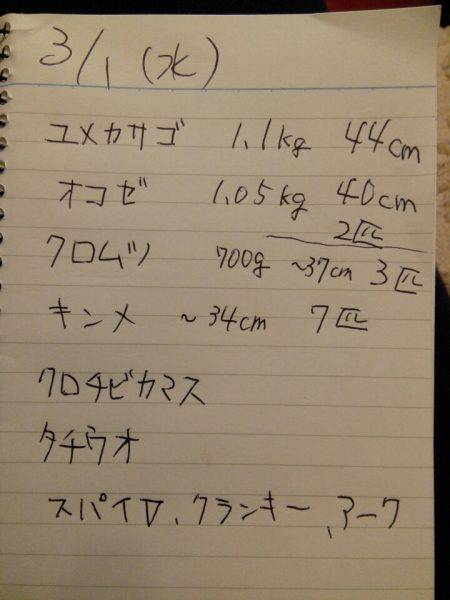 3/1 (水)
ユメカサゴ 1.1kg 44cm
オコゼ 1.05kg 40cm
2匹
クロムツ 700g ~37cm 3匹
キンメ ~34cm 7匹
クロチビカマス
タチウオ
スパイV、クランキー、アーク